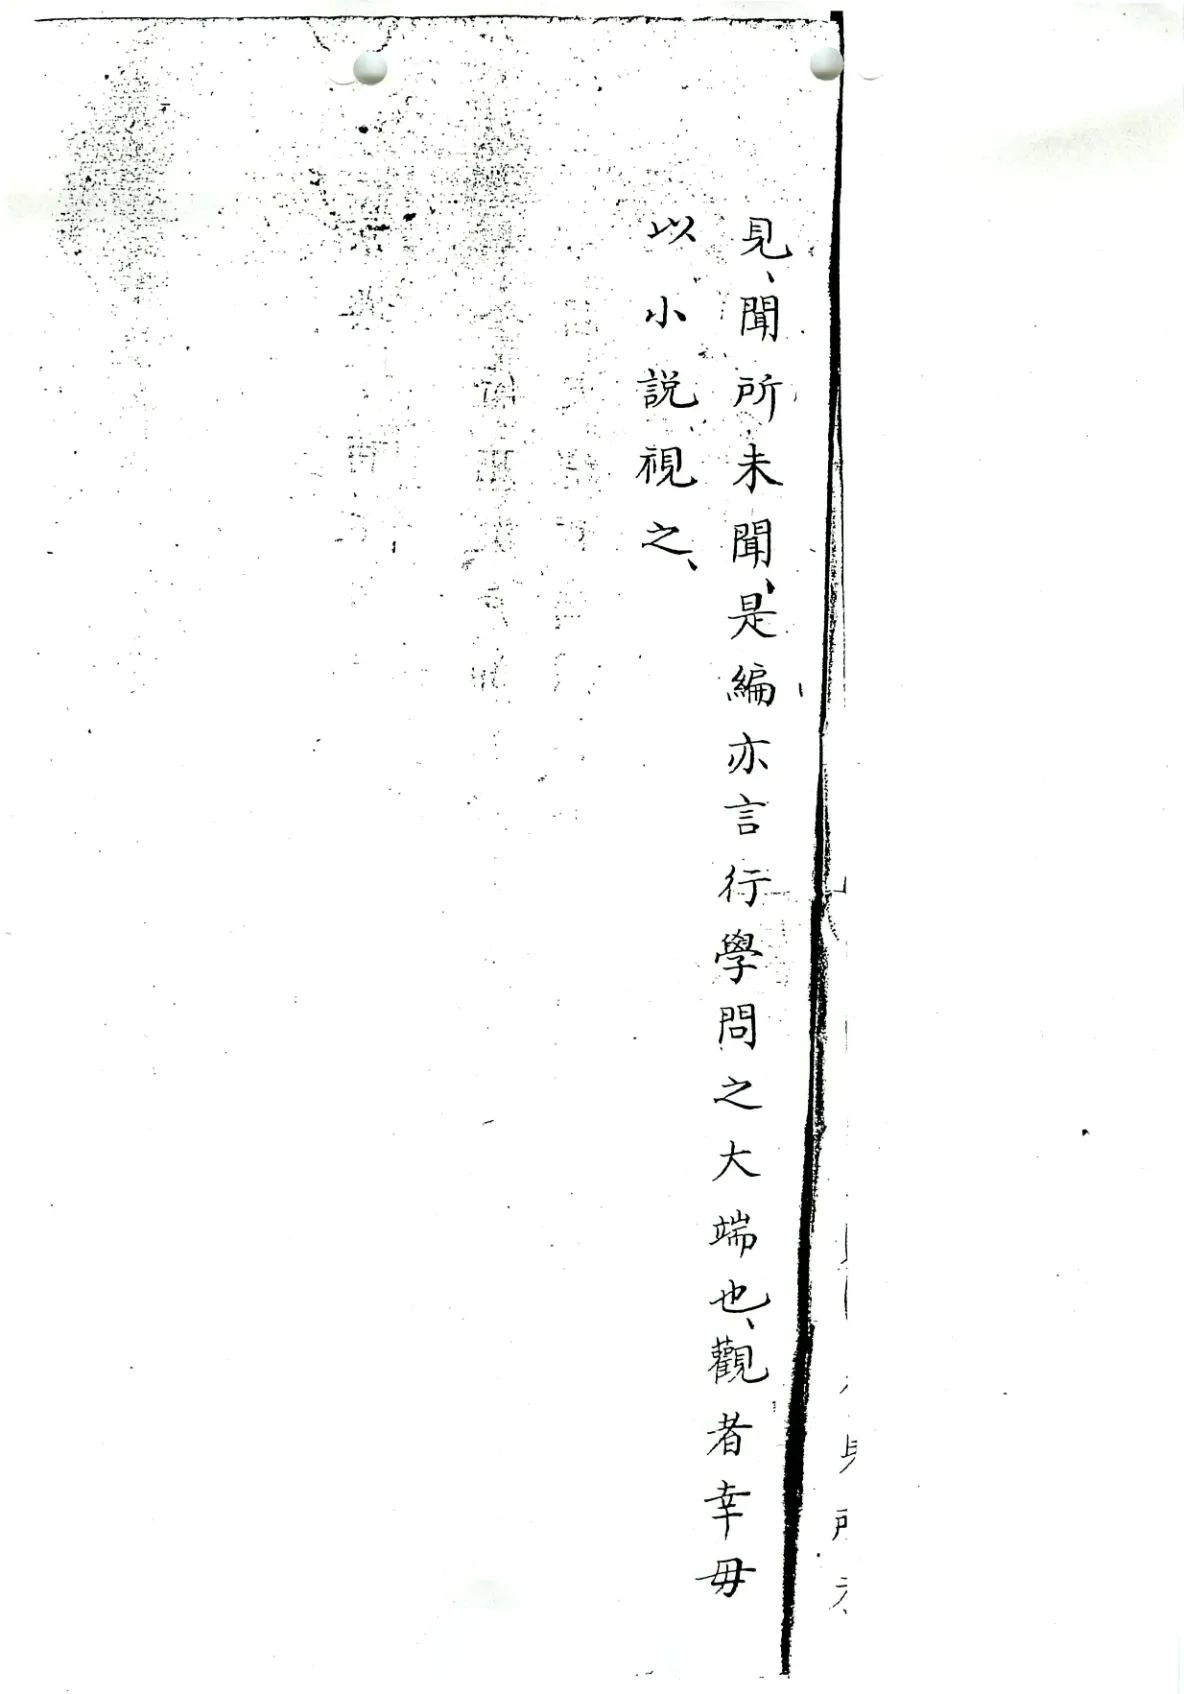 見、聞所未聞、是編亦言行學問之大端也、觀者幸毋
以小說視之、